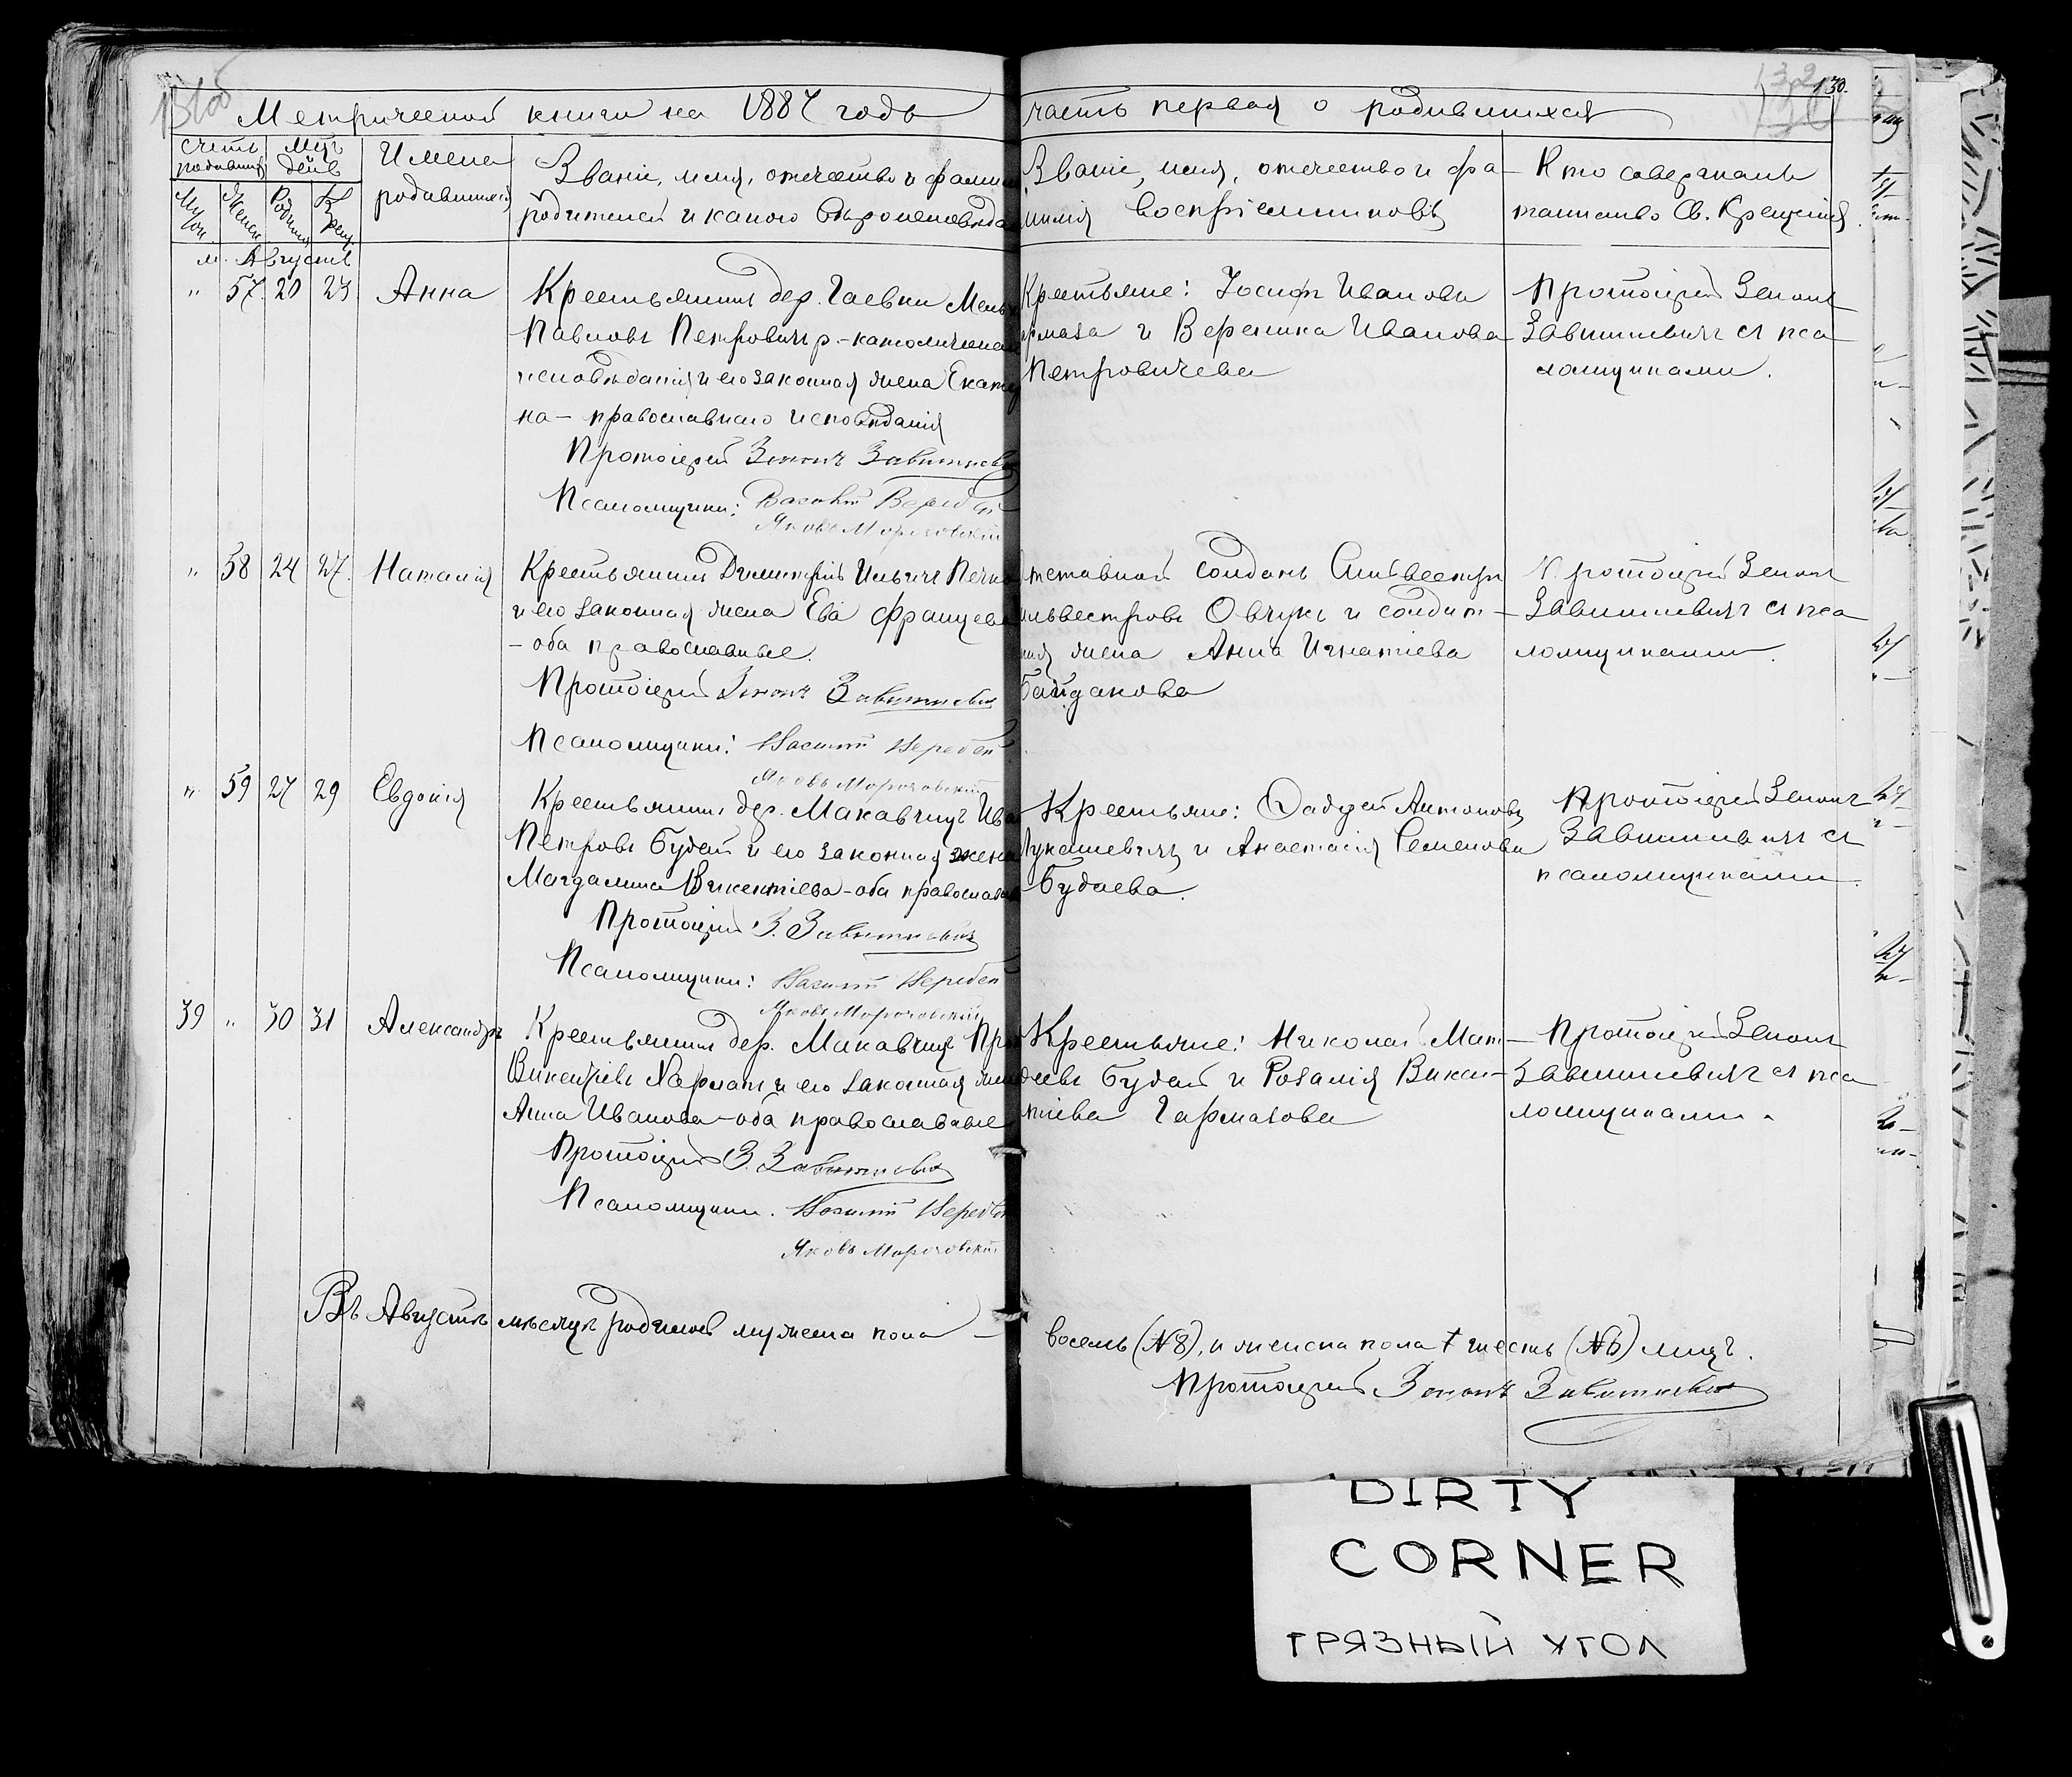 Метрической книги на 1887 годъ часть первая о родившихся
130.
Счетъ родившихся
Муж.
Женск.
Рожденія
Крещ.
Имена родившихся
Званіе, имя, отчество и фами
родителей и какого вѣроисповѣда
Званіе, имя, отчество и фа-
милія воспріемниковъ
Кто совершалъ
таинство Св. Крещенія
м. Августъ
" 57 20 23 Анна
Крестьянинъ дер. Гаевки
Павловъ Петровичъ р.-католическаго
исповѣданія и его законная жена Екате
на - православнаго исповѣданія
Протоіерей Зенонъ Завитневич
Псаломщики:
Яковъ Морозовскій
Крестьяне: Іосифъ Ивановъ
и Вероника Иванова
Петровичева
Протоіерей Зенонъ
Завитневичъ съ пса
ломщиками.
" 58 24 27. Наталія
Крестьянинъ Димитрій Ильичъ
и его законная жена Ева Францева
- оба православные.
Протоіерей Зенонъ Завитневич
Псаломщики: Василій Веребей
Яковъ Морозовскій
тставной солдатъ Сильвестръ
ильвестровъ Овчукъ и солдат-
жена Анна Игнатіева
Байдакова
Протоіерей Зенонъ
Завитневичъ съ пса
ломщиками.
" 59 27 29 Евдокія
Крестьянинъ дер. Макавчицъ Ива
Петровъ Будай и его законная жена
Магдалина Викентіева - оба православн
Протоіерей З. Завитневич
Псаломщики: Василій Веребей
Яковъ Морозовскій
Крестьяне: Фаддей Антоновъ
Лукашевичъ и Анастасія Семенова
Будаева.
Протоіерей Зенонъ
Завитневичъ съ
псаломщиками.
39 " 30 31 Александръ
Крестьянинъ дер. Макавчицъ
Викентіевъ и его законная жен
Анна Иванова - оба православные
Протоіерей З. Завитневич
Псаломщики. Василій Веребей
Яковъ Морозовскій
Крестьяне: Николай Мат-
Будай и Розалія Викен-
тіева Гармазова
Протоіерей Зенонъ
Завитневичъ съ пса
ломщиками.
Въ Августѣ мѣсяцѣ родилось мужеска пола -
восемь (№8), и женска пола шесть (№6) лицъ.
Протоіерей Зенонъ Завитневич
DIRTY
CORNER
ГРЯЗНЫЙ УГОЛ